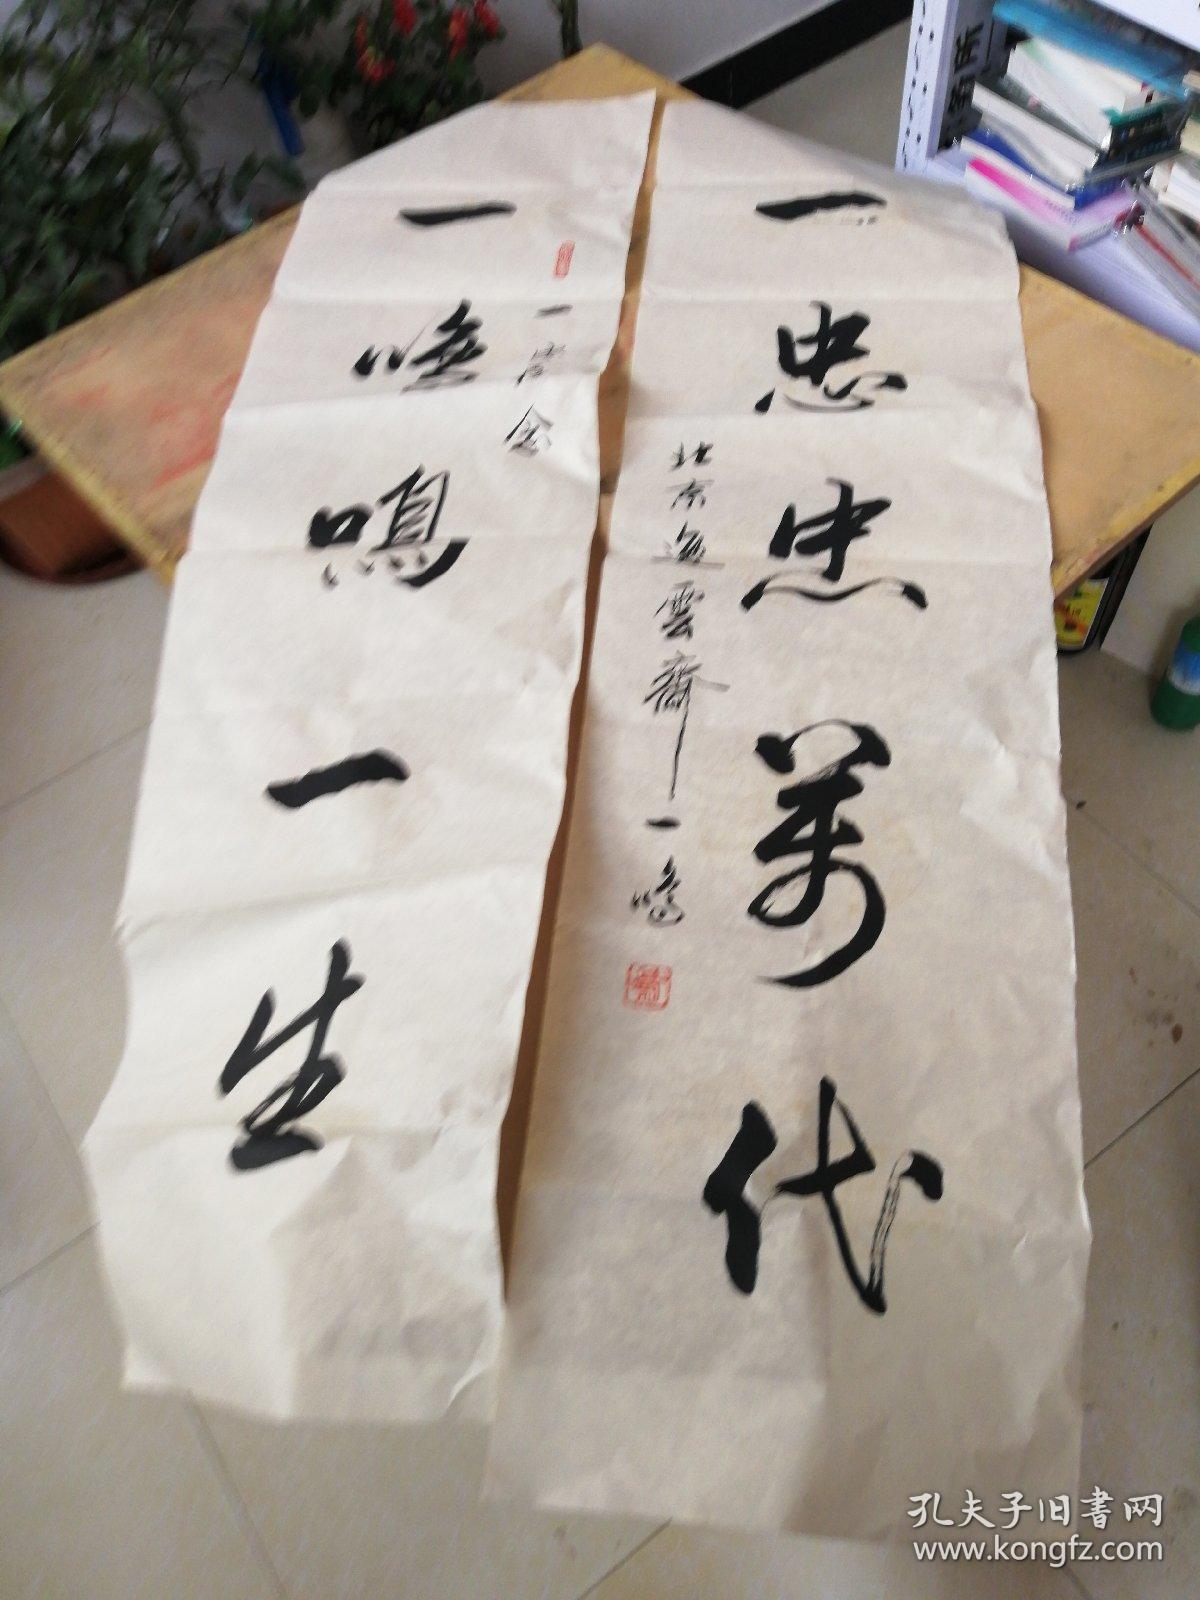 一忠忠萬代
北京逸雲齋一鳴
一鳴鳴一生
孔夫子旧書网
www.kongfz.com